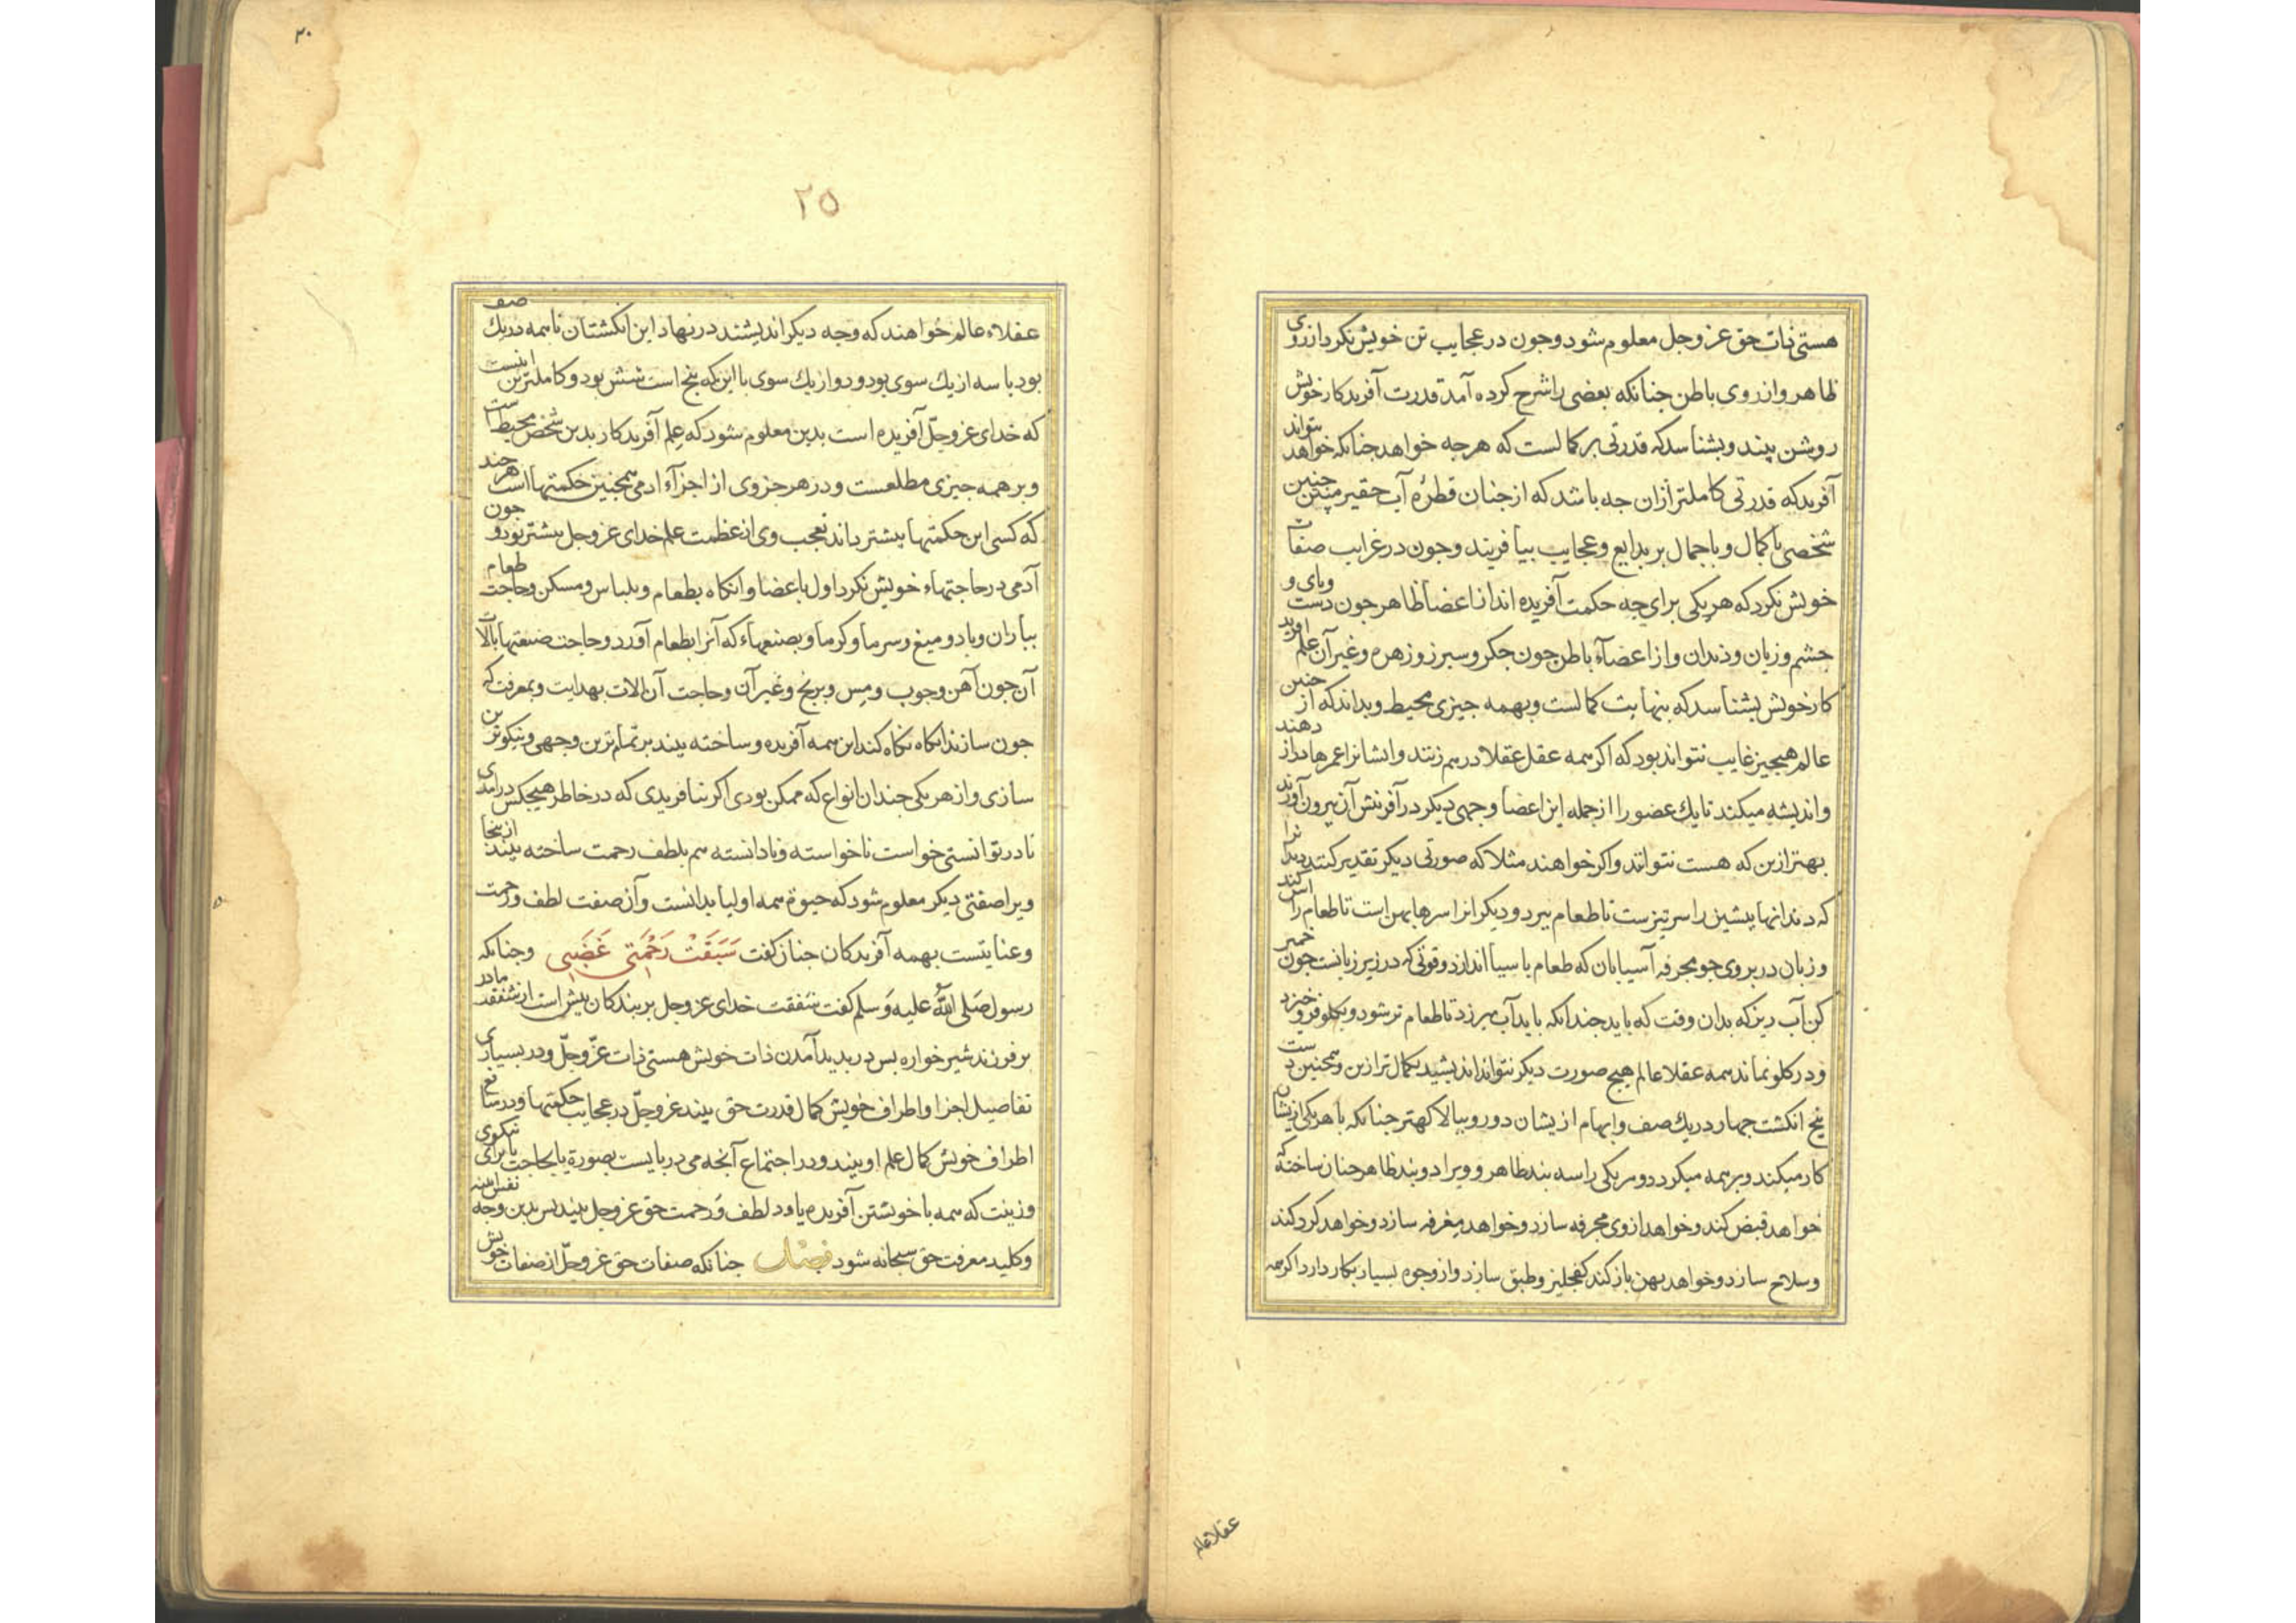 هستی ذات حق عز و جل معلوم شود و جون در عجایب تن خویش نکرد از روی
ظاهر و از روی باطن جنانکه بعضی را شرح کرده آمد قدرت آفریدکار خویش
روشن بیند و بشناسد که قدرتی بر کمالست که هرجه خواهد جنانکه خواهد بتواند
آفرید که قدرتی کاملتر ازان جه باشد که از جنان قطرهٔ آب حقیر مهین جنین
شخصی با کمال و با جمال بر بدایع و عجایب بیافریند و جون در غرایب صفات
خویش نکرد که هر یکی برای چه حکمت آفریده اند از اعضا ظاهر جون دست و پای و
جشم و زبان و دندان و از اعضآء باطن جون جکر و سبرز و زهره و غیر آن علم آفرید
کار خویش بشناسد که بنهایت کمالست و بهمه جیزی محیط و بداند که از جنین
عالم هیجیز غایب نتواند بود که اکر همه عقل عقلا در هم زنند و ایشانرا عمرها دراز دهند
و اندیشه میکنند تا یك عضو را از جمله این اعضا وجهی دیکر در آفرنش آن بیرون آورند
بهتر ازین که هست نتوانند و اکر خواهند مثلا که صورتی دیکر تقدیر کنند دندانرا
که دندانها پیشین را سر تیزست تا طعام ببرد و دیکر انرا سرها بهن است تا طعام را آس کند
و زبان در بر وی جو مجرفه آسیابان که طعام باسیا اندازد و قوتی که در زیر زبانست جون خمیر
کن آب ریز که بدان وقت که باید جندانکه باید آب میریزد تا طعام تر شود و بکلو فرو خیزد
و در کلو نماند همه عقلا عالم هیج صورت دیکر نتوانند اندیشید بکمال تر ازین و همجنین دست
پنج انکشت جهار در یك صف و ابهام از یشان دور و ببالا کهتر جنانکه با هر یکی ازیشان
کار میکند و بر همه میکردد و هر یکی را سه بند ظاهر و ویرا دو بند ظاهر جنان ساخته که
خواهد قبض کند و خواهد از وی مجرفه سازد و خواهد مغرفه سازد و خواهد کرد کند
و سلاح سازد و خواهد بهن باز کند کفجلیز و طبق سازد و از وجوه بسیار بکار دارد اکر همه
عقلاء عالم
۲۰
۲۵
عقلاء عالم خواهند که وجه دیکر اندیشند در نهاد این انکشتان تا همه در یك صف
بود یا سه از یك سوی بود و دو از یك سوی یا این که پنج است شش بود و کاملترین اینست
که خدای عز و جلّ آفریده است بدین معلوم شود که علم آفریدکار بدین شخص محیط است
و بر همه جیزی مطلعست و در هر جزوی از اجزآء ادمی همجنین حکمتها است هر جند
که کسی این حکمتها بیشتر داند تعجب وی از عظمت علم خدای عز و جل بیشتر بود و جون
آدمی در حاجتهاء خویش نکرد اول باعضا و انکاه بطعام و بلباس و مسکن و حاجت طعام
بباران و باد و میغ و سرما و کرما و بصنعهاء که آنرا بطعام آورد و حاجت صنعتها بآلات
آن جون آهن و جوب و مس و برنج و غیر آن و حاجت آن الات بهدایت و بمعرفت که
جون سازند انکاه نکاه کند این همه آفریده و ساخته بیند بر تمام ترین وجهی و نیکوترین
سازی و از هر یکی جندان انواع که ممکن بودی اکر نیافریدی که در خاطر هیجکس درآمدی
یا در توانستی خواست ناخواسته و نادانسته هم بلطف رحمت ساخته بیند ازینجا
ویرا صفتی دیکر معلوم شود که حیوة همه اولیا بدانست و آن صفت لطف و رحمت
و عنایتست بهمه آفریدکان جنان کفت سَبَقَتْ رَحْمَتی غَضَبی و جنانکه
رسول صَلی اللهُ علیه وَسلم کفت شفقت خدای عز و جل بر بندکان بیش است از شفقت مادر
بر فرزند شیر خواره بس در بدید آمدن ذات خویش هستی ذات عزّ و جلّ و در بسیاری
تفاصیل اجزا و اطراف خویش کمال قدرت حق بیند عز و جلّ در عجایب حکمتها و در منافع
اطراف خویش کمال علم او بیند و در اجتماع آنجه می دربایست بصورة یا بحاجت یا برای نیکوی
و زینت که همه با خویشتن آفریده یاود لطف وَ رحمت حق عز و جل بیند بس بدین وجه نفس آینه
و کلید معرفت حق سبحانه شود فصل جنانکه صفات حق عز و جلّ از صفات خویش